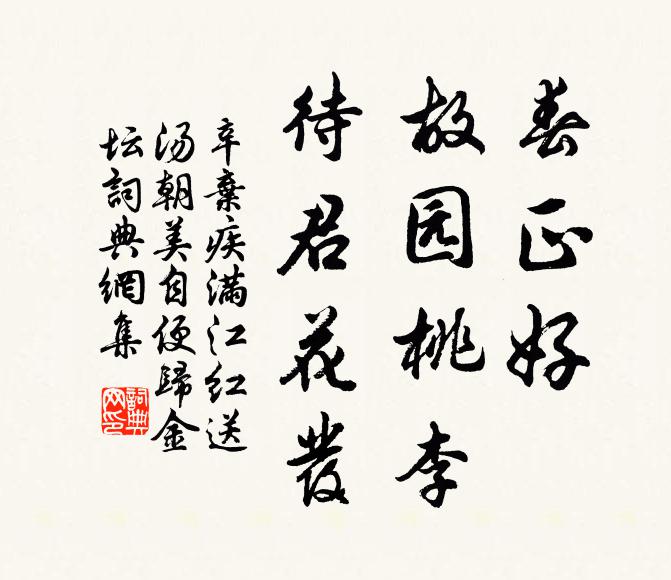 春正好
故园桃李
待君花發
辛棄疾满江红送
汤朝美自便歸金
坛詞典網集
詞典网印